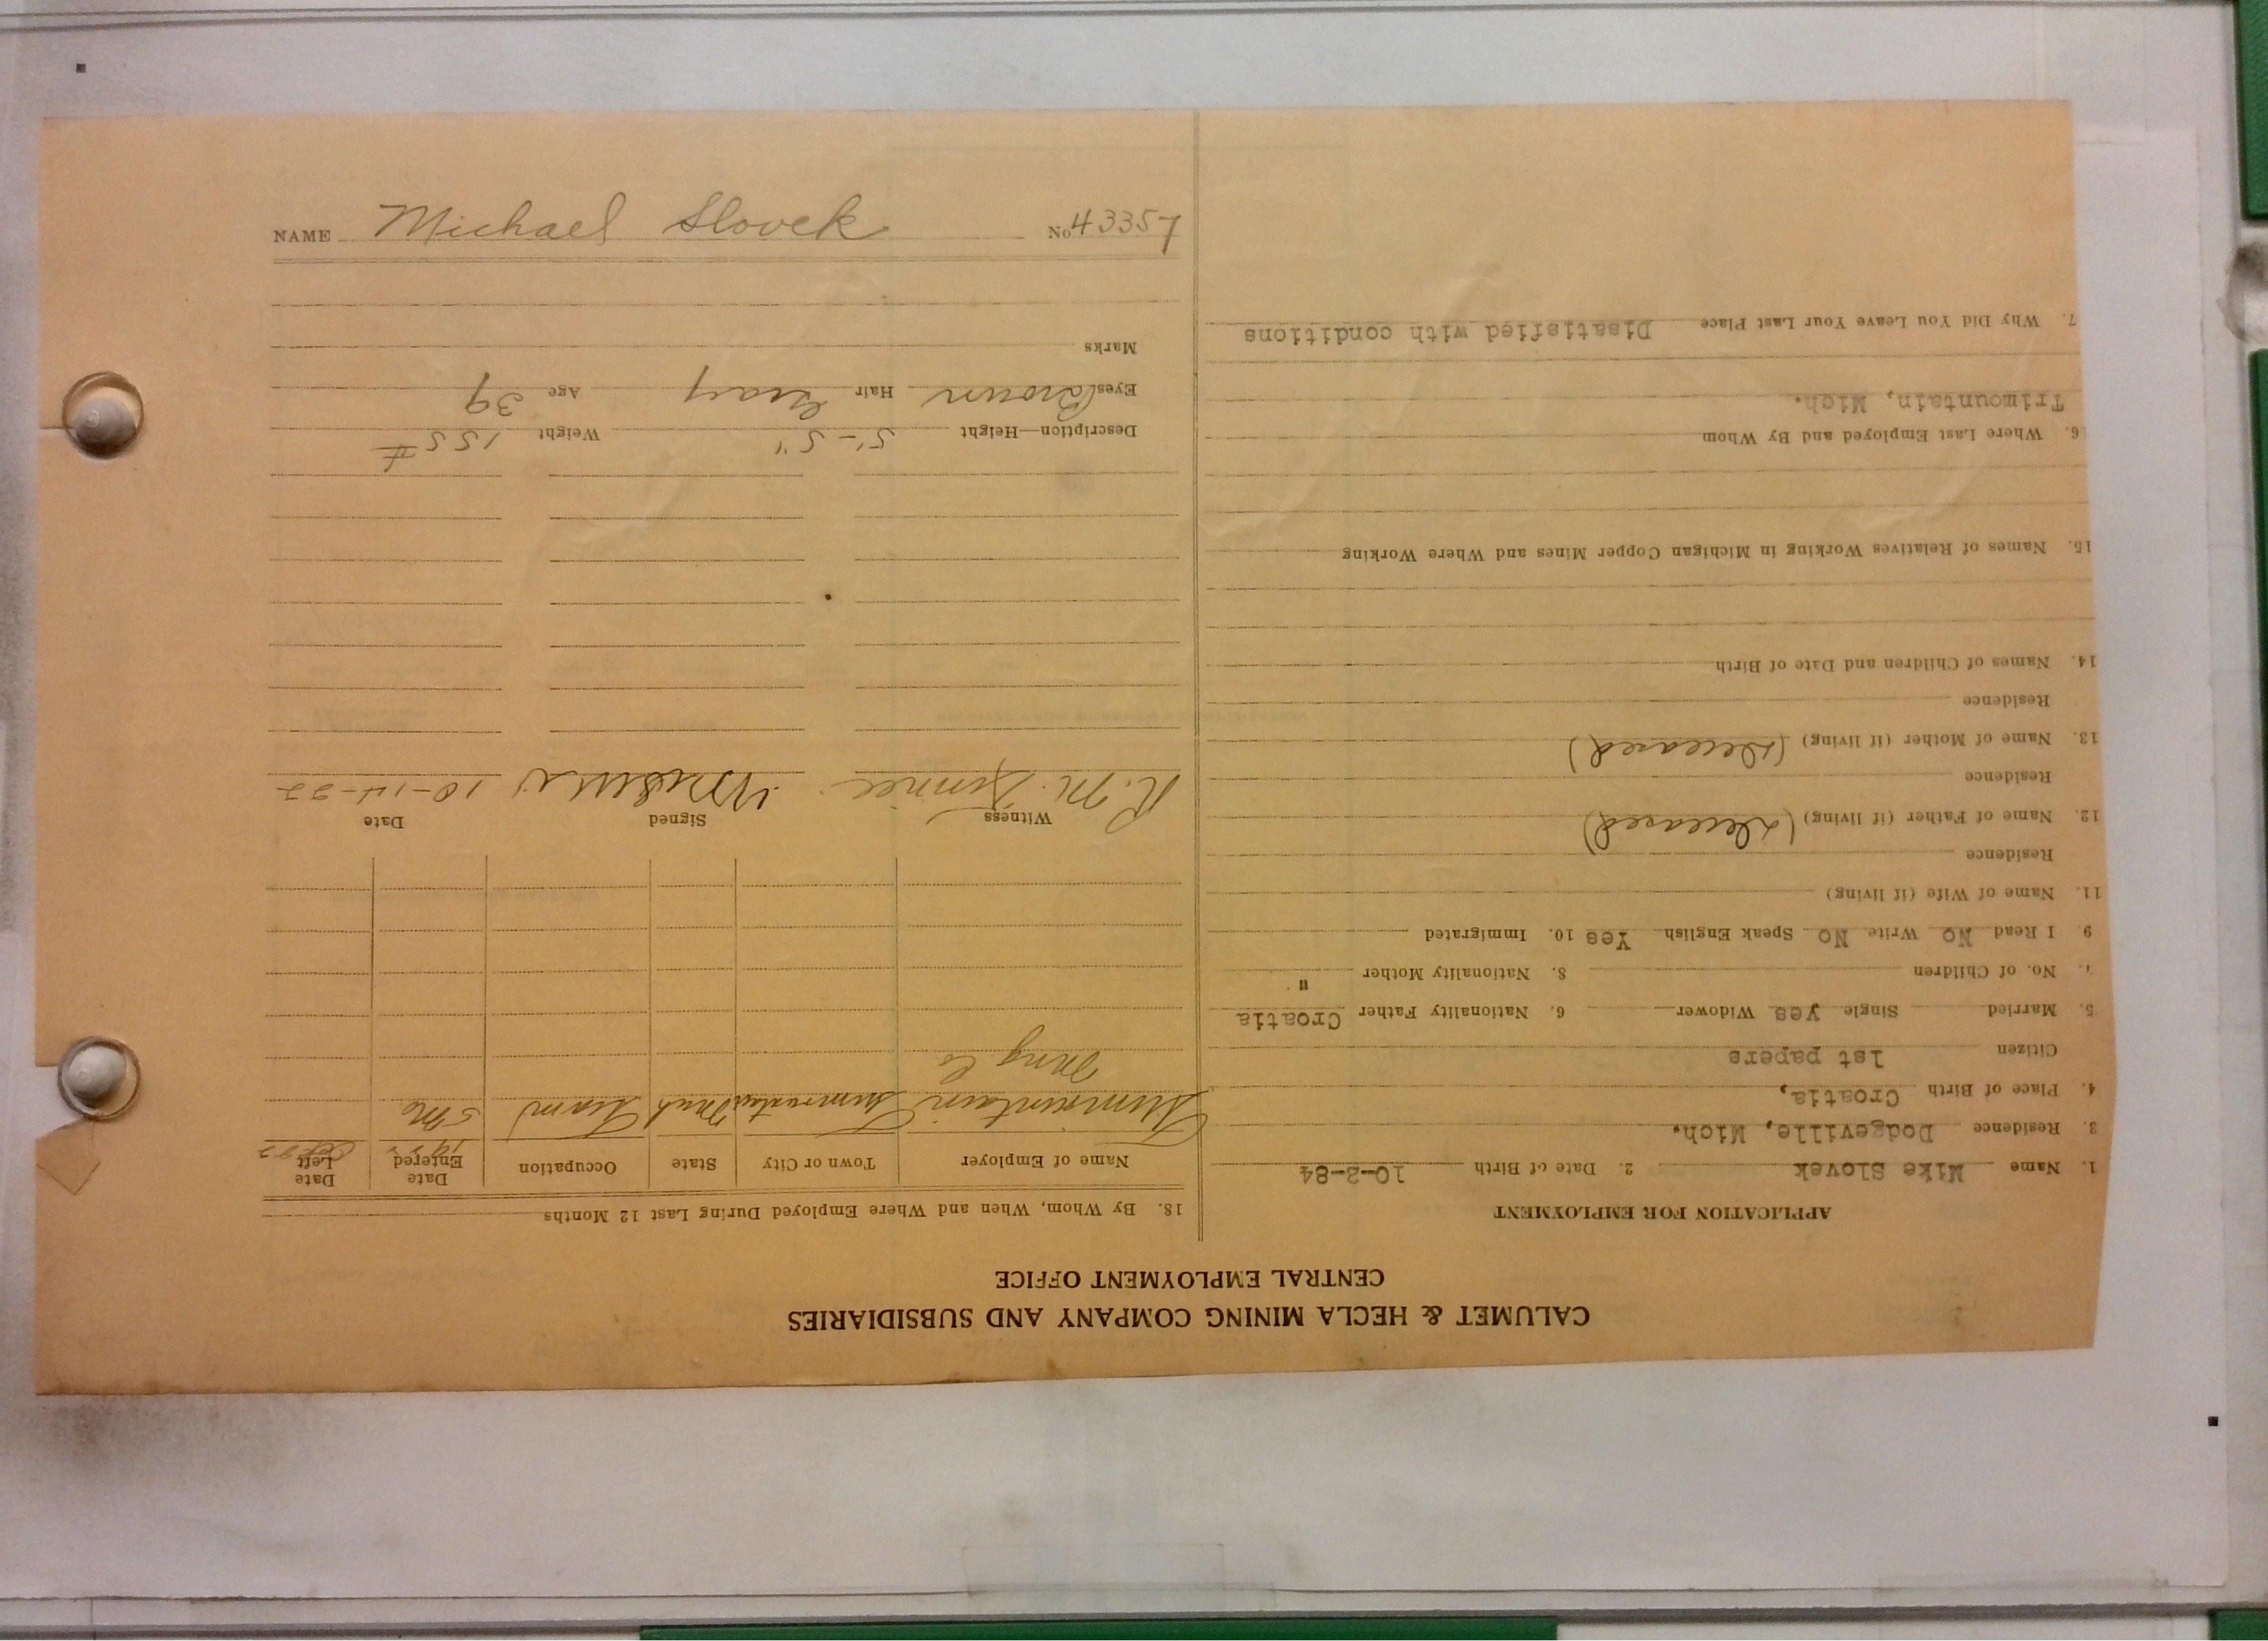 NAME Michael Slovek No 43357
CALUMET & HECLA MINING COMPANY AND SUBSIDIARIES
CENTRAL EMPLOYMENT OFFICE
APPLICATION FOR EMPLOYMENT
1. Name Mike Slovek 2. Date of Birth 10-2-84
3. Residence Dodgeville, Mich.
4. Place of Birth Croatia,
Citizen 1st papers
5. Married Single yes Widower 6. Nationality Father Croatia
7. No. of Children 8. Nationality Mother "
9. I Read No Write No Speak English Yes 10. Immigrated
11. Name of Wife (if living)
Residence
12. Name of Father (if living) (Deceased)
Residence
13. Name of Mother (if living) (Deceased)
Residence
14. Names of Children and Date of Birth
15. Names of Relatives Working in Michigan Copper Mines and Where Working
16. Where Last Employed and By Whom
Trimountain, Mich.
7. Why Did You Leave Your Last Place Disatisfied with conditions
18. By Whom, When and Where Employed During Last 12 Months
Name of Employer Town or City State Occupation Date Entered Date Left
Trimountain Trimountain Mich Tram 5 Mo
Mng Co
Witness Signed Date
R. M. 10-14-22
Description—Height 5'-5" Weight 155 #
Eyes Brown Hair Gray Age 39
Marks